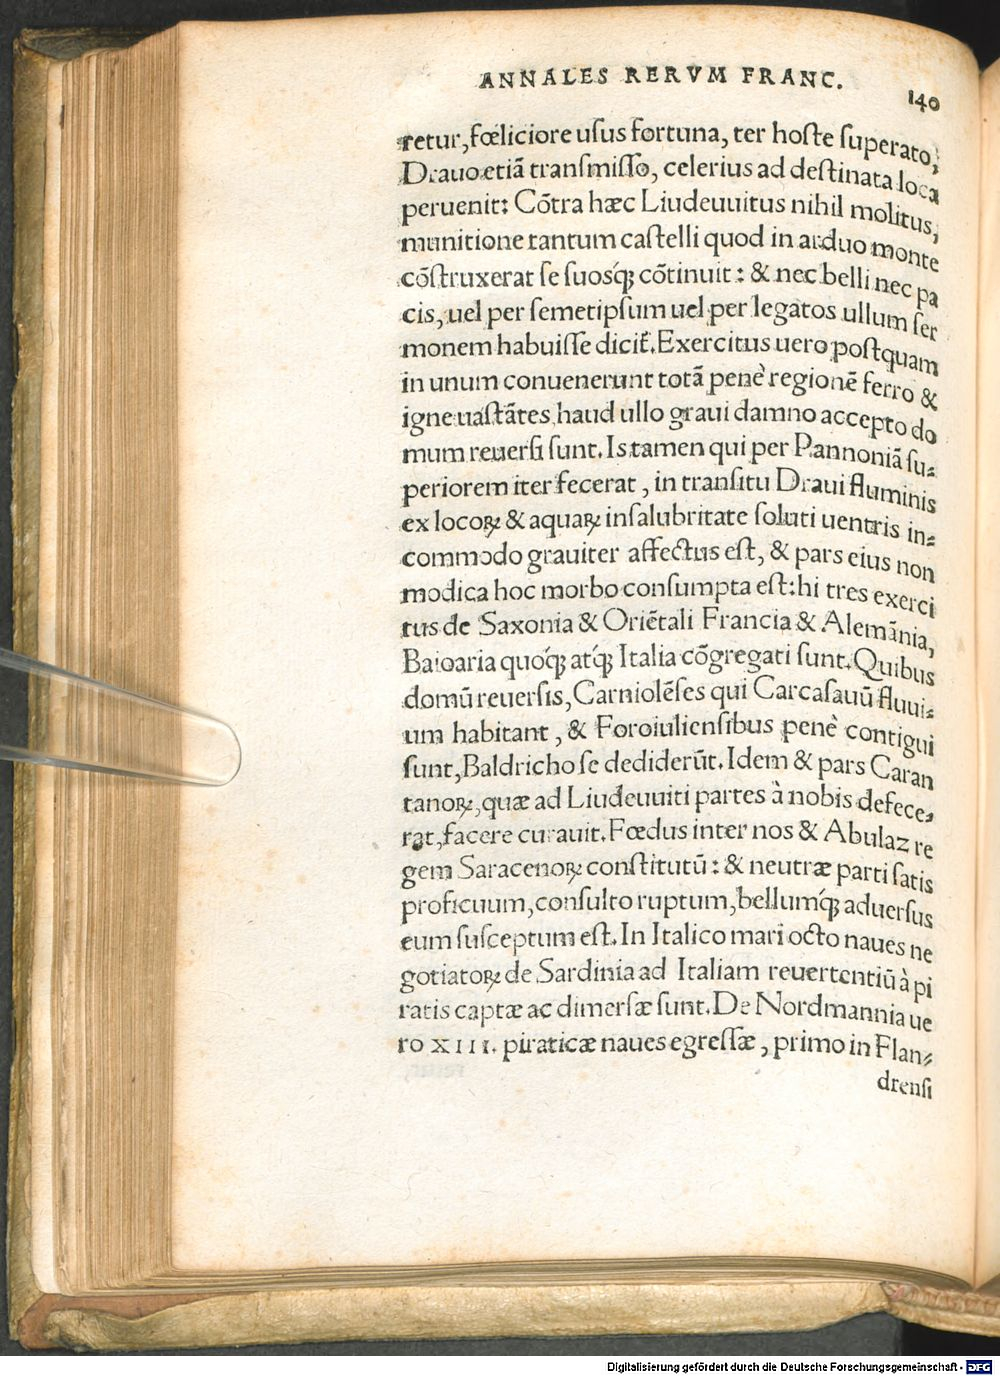 ANNALES RERVM FRANC.
140
retur, fœliciore uſus fortuna, ter hoſte ſuperato,
Drauo etiã tranſmiſſo, celerius ad deſtinata loca
peruenit: Cõtra hæc Liudeuuitus nihil molitus,
munitione tantum caſtelli quod in arduo monte
cõſtruxerat ſe ſuosq́ꝫ cõtinuit: & nec belli nec pa
cis, uel per ſemetipſum uel per legatos ullum ſer
monem habuiſſe dicit̃. Exercitus uero poſtquam
in unum conuenerunt totã penè regionẽ ferro &
igne uaſtãtes, haud ullo graui damno accepto do
mum reuerſi ſunt. Is tamen qui per Pannoniã ſu-
periorem iter fecerat, in tranſitu Draui fluminis
ex locoꝝ & aquaꝝ inſalubritate ſoluti uentris in-
commodo grauiter affectus eſt, & pars eius non
modica hoc morbo conſumpta eſt: hi tres exerci
tus de Saxonia & Oriẽtali Francia & Alemãnia,
Baioaria quoq́ꝫ atq́ꝫ Italia cõgregati ſunt. Quibus
domũ reuerſis, Carniolẽſes qui Carcaſauũ fluui-
um habitant, & Foroiulienſibus penè contigui
ſunt, Baldricho ſe dediderũt. Idem & pars Caran
tanoꝝ, quæ ad Liudeuuiti partes à nobis defece-
rat, facere curauit. Fœdus inter nos & Abulaz re
gem Saracenoꝝ conſtitutũ: & neutræ parti ſatis
proficuum, conſulto ruptum, bellumq́ꝫ aduerſus
eum ſuſceptum eſt. In Italico mari octo naues ne
gotiatoꝝ de Sardinia ad Italiam reuertentiũ à pi
ratis captæ ac dimerſæ ſunt. De Nordmannia ue
ro XIII. piraticæ naues egreſſæ, primo in Flan-
drenſi
Digitalisierung gefördert durch die Deutsche Forschungsgemeinschaft - DFG